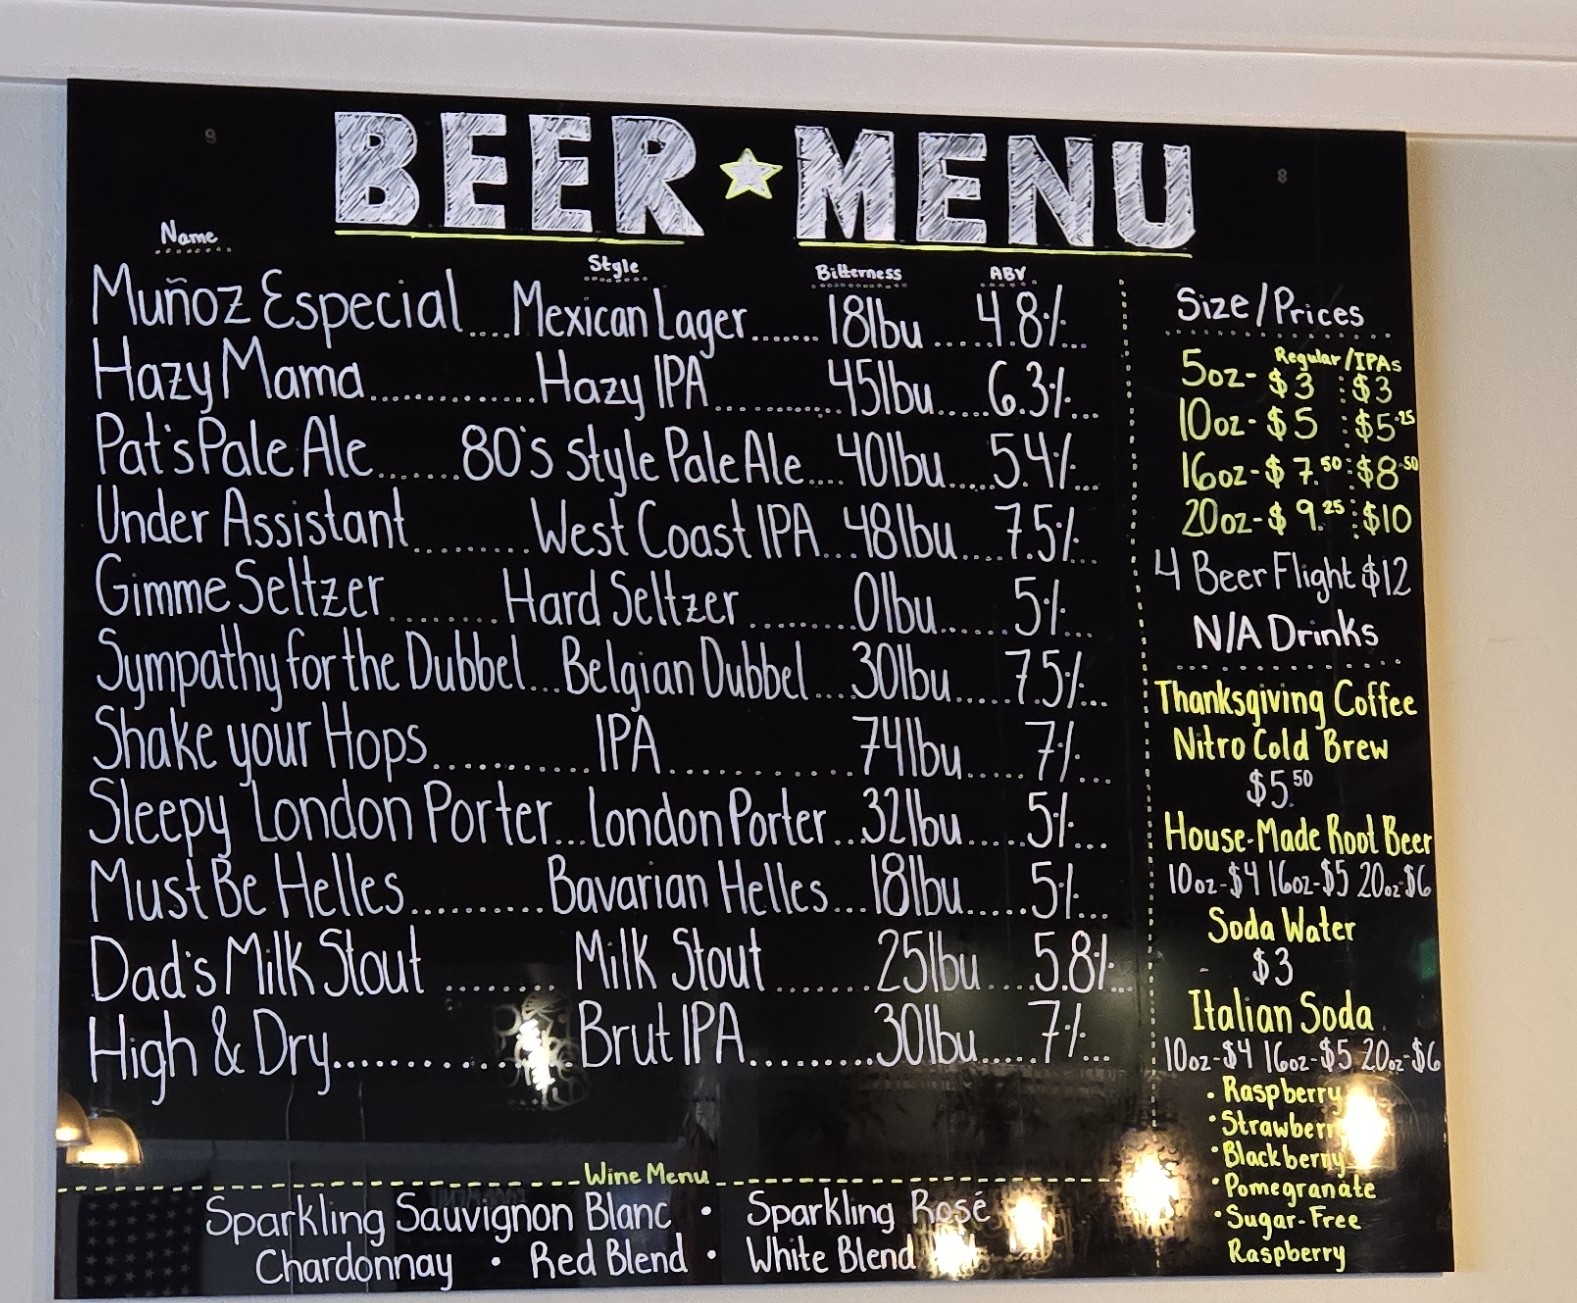 BEER ★ MENU
Name Style Bitterness ABV
Muñoz Especial....Mexican Lager.......18Ibu.....4.8%...
Hazy Mama..............Hazy IPA..........45Ibu.....6.3%...
Pat's Pale Ale.......80's Style Pale Ale....40Ibu.....5.4%...
Under Assistant.........West Coast IPA...48Ibu....7.5%...
Gimme Seltzer........Hard Seltzer.........0Ibu......5%...
Sympathy for the Dubbel...Belgian Dubbel....30Ibu.....7.5%...
Shake your Hops...........IPA.............74Ibu.....7%...
Sleepy London Porter...London Porter...32Ibu.....5%...
Must Be Helles..........Bavarian Helles...18Ibu.....5%...
Dad's Milk Stout ........ Milk Stout.......25Ibu....5.8%...
High & Dry..............Brut IPA.........30Ibu.....7%...
Size/Prices
Regular/IPAs
5oz- $3 : $3
10oz- $5 : $5.25
16oz- $7.50 : $8.50
20oz- $9.25 : $10
4 Beer Flight $12
N/A Drinks
Thanksgiving Coffee
Nitro Cold Brew
$5.50
House-Made Root Beer
10oz-$4 16oz-$5 20oz-$6
Soda Water
$3
Italian Soda
10oz-$4 16oz-$5 20oz-$6
• Raspberry
• Strawberry
• Blackberry
• Pomegranate
• Sugar-Free
Raspberry
Wine Menu
Sparkling Sauvignon Blanc • Sparkling Rosé
Chardonnay • Red Blend • White Blend